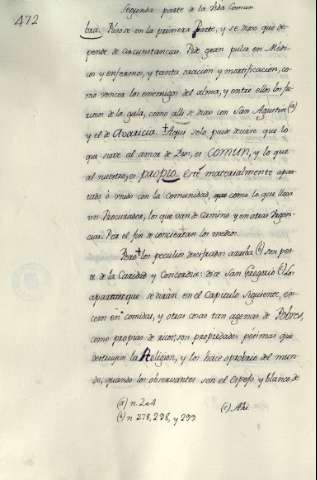 472
Segunda parte de la Vida Comun
bra. Pusose en la primera Parte, y se dixo que de-
pende de circunstancias. Pide gran pulso en Medi-
co y enfermo, y tanta oracion y mortificación, co-
mo vencer los enemigos del alma, y entre ellos los
de la gula, como alli se dixo con San Agustin (a)
y el de Avaricia. Aqui solo puede decirse que lo
que sirve al amor de Dios, es COMUN, y lo que
al nuestro, es propio. Esté materialmente apar-
tado ò unido con la comunidad, como lo que lleva
un Procurador, los que van de camino y en otras diligen-
cias. Por el fin se conocieran los medios.
Pero los peculios detestados arriba (b) son pes-
te de la Caridad y Concordia: dice San Gregorio (c) Los
apartamientos que se dirán en el Capitulo siguiente, ex-
cesos en comidas, y otras cosas tan agenas de Pobres,
como propias de ricos, son propriedades pésimas que
destruyen la Religion, y los hace oprobrio del mun-
do, quando los observantes son el espejo, y blanco de
(a) n. 264
(b) n. 278, 298, y 299
(c) Ahi